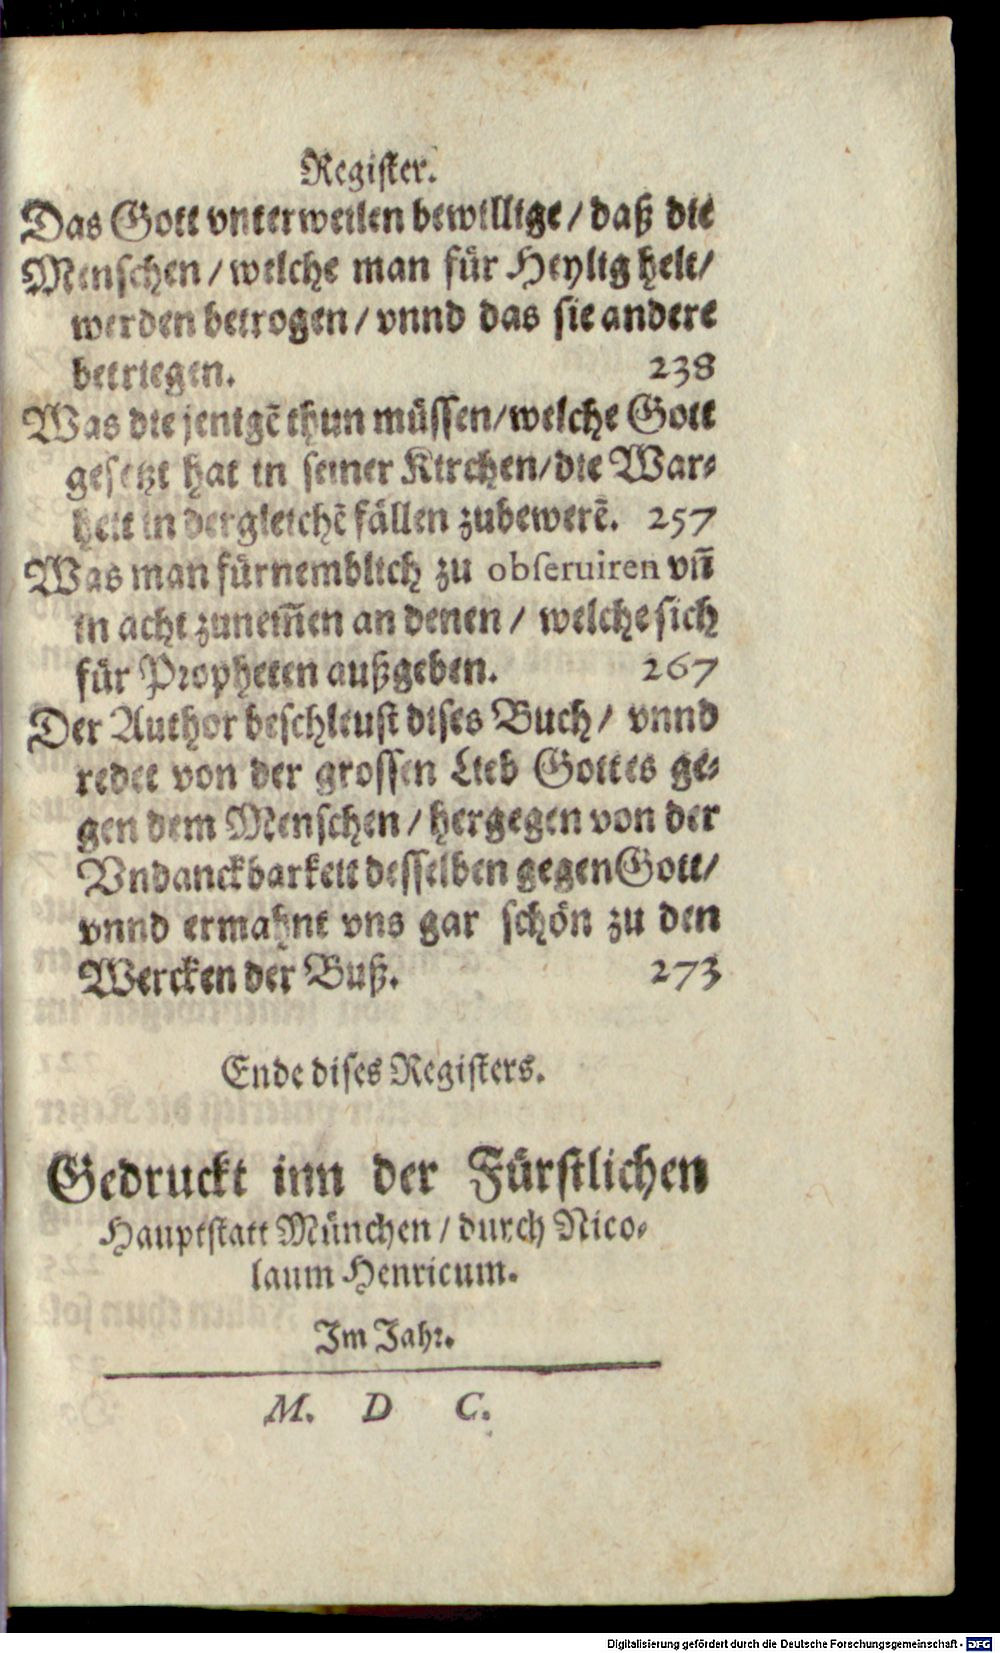 Register.
Das Gott vnterweilen bewillige / daß die
Menschen / welche man für Heylig helt /
werden betrogen / vnnd das sie andere
betriegen. 238
Was die jenigẽ thun müssen / welche Gott
gesetzt hat in seiner Kirchen / die War-
heit in dergleichẽ fällen zubewerẽ. 257
Was man fürnemblich zu obseruiren vñ
in acht zunem̃en an denen / welche sich
für Propheten außgeben. 267
Der Author beschleust dises Buch / vnnd
redet von der grossen Lieb Gottes ge-
gen dem Menschen / hergegen von der
Vndanckbarkeit desselben gegen Gott /
vnnd ermahnt vns gar schön zu den
Wercken der Buß. 273
Ende dises Registers.
Gedruckt inn der Fürstlichen
Hauptstatt München / durch Nico-
laum Henricum.
Im Jahr.
M. D C.
Digitalisierung gefördert durch die Deutsche Forschungsgemeinschaft - DFG